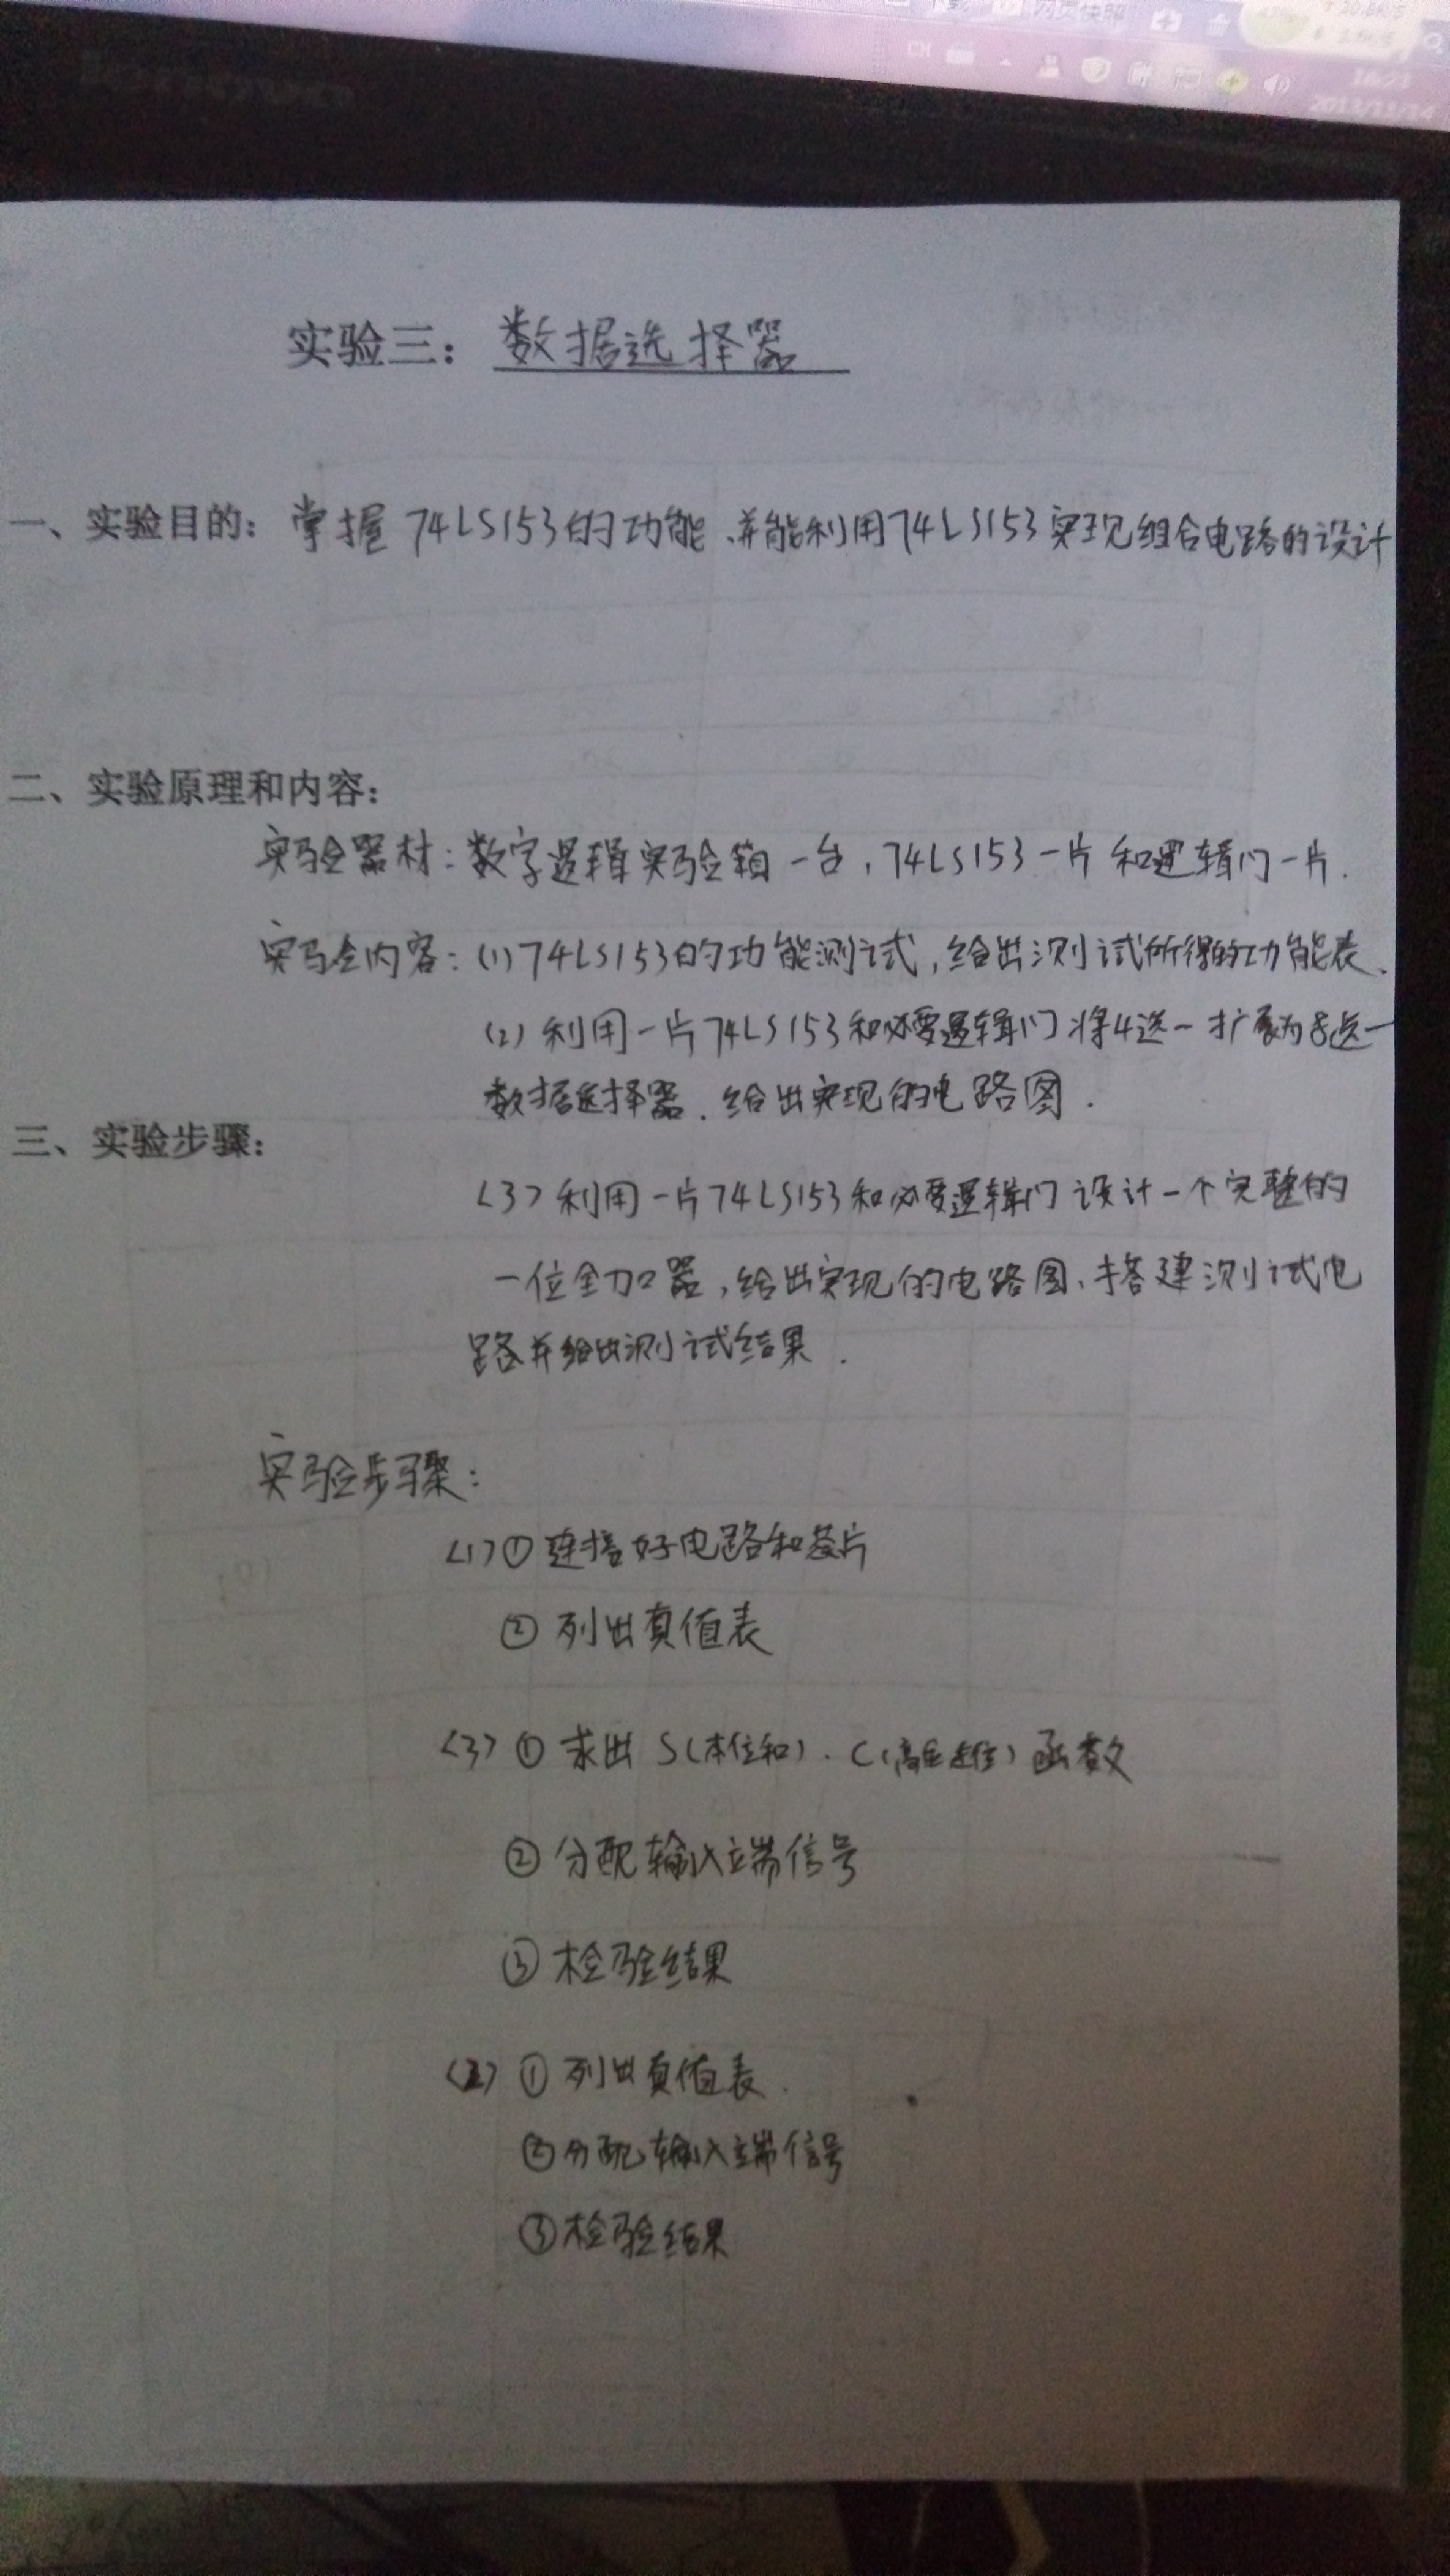 网页快照
CH
16:21
2013/11/14
lenovo
实验三：数据选择器
一、实验目的：掌握74LS153的功能，并能利用74LS153实现组合电路的设计
二、实验原理和内容：
实验器材：数字逻辑实验箱一台，74LS153一片和逻辑门一片.
实验内容：(1)74LS153的功能测试，给出测试所得的功能表.
(2) 利用一片74LS153和必要逻辑门将4选一扩展为8选一
数据选择器.给出实现的电路图.
三、实验步骤：
<3>利用一片74LS153和必要逻辑门设计一个完整的
一位全加器,给出实现的电路图、搭建测试电
路并给出测试结果.
实验步骤:
<1>①连接好电路和芯片
②列出真值表
<3>①求出S(本位和).C(高位进位)函数
②分配输入端信号
③检验结果
<2>①列出真值表.
②分配输入端信号
③检验结果